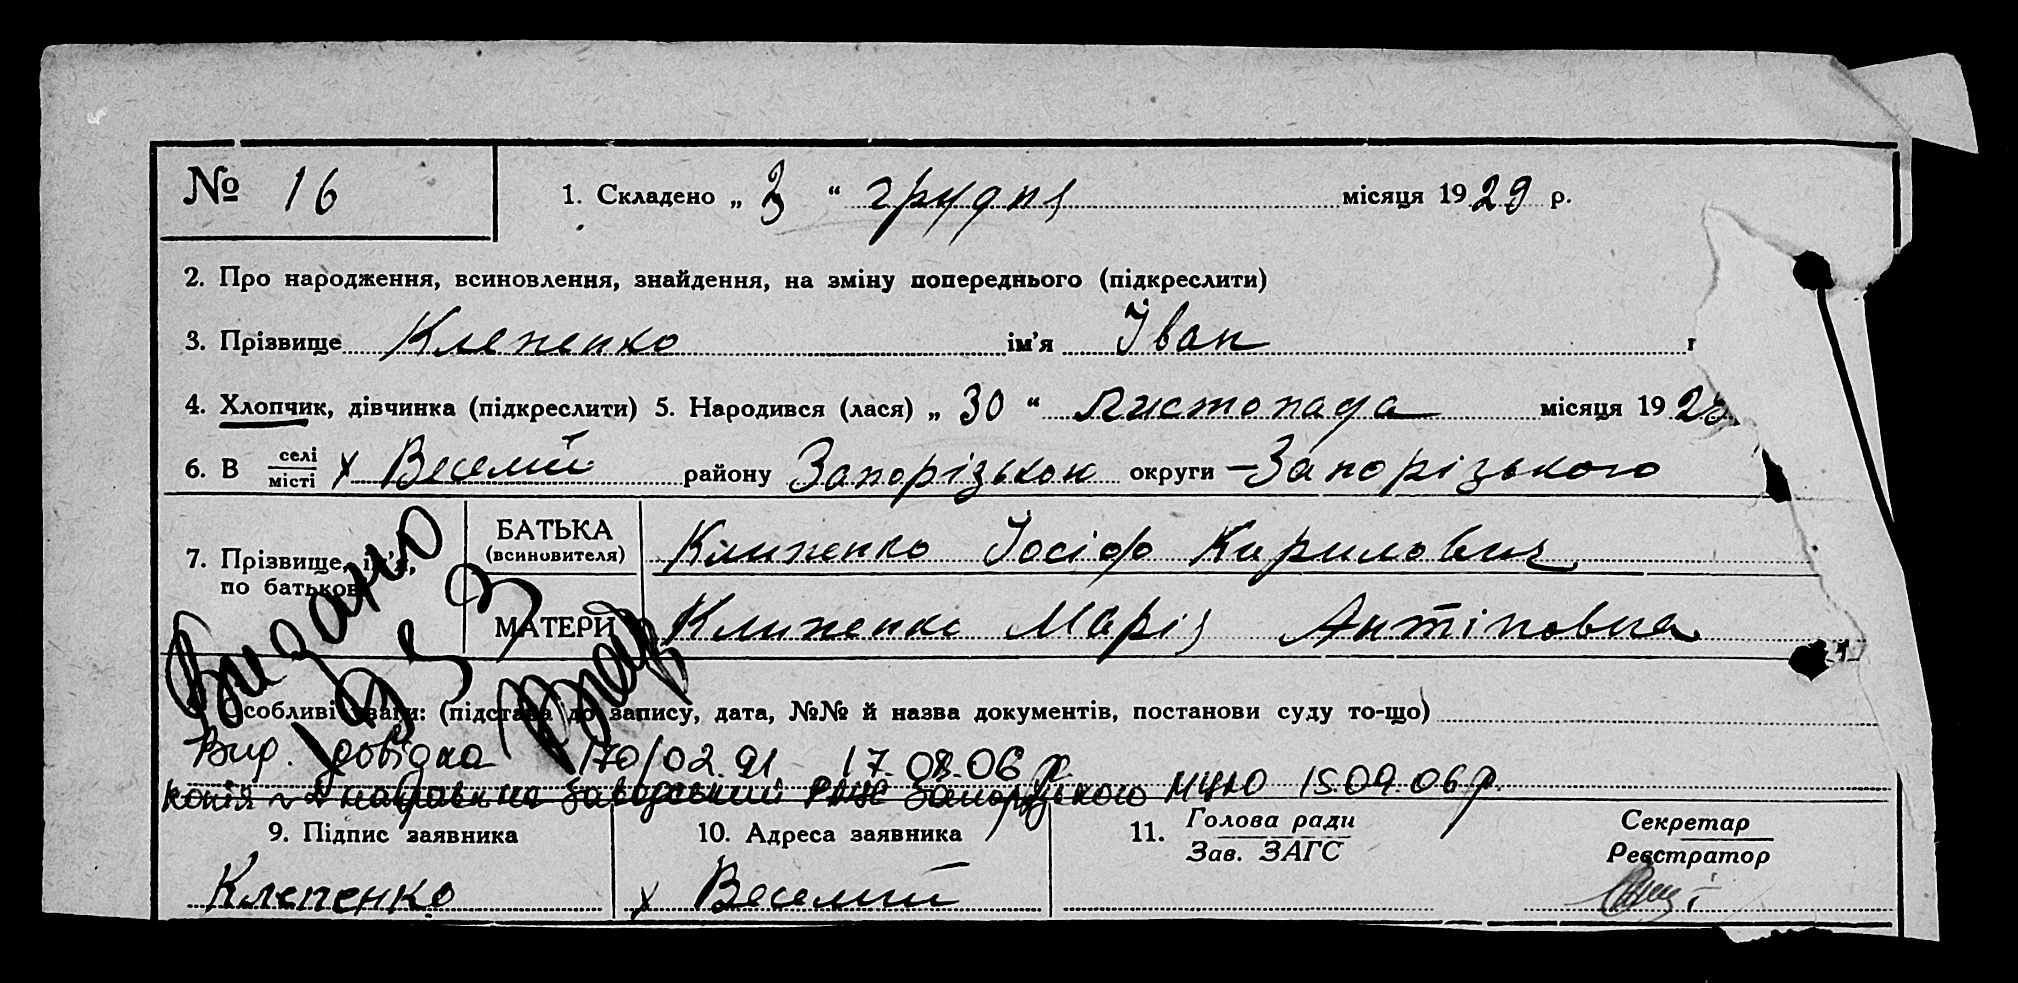 № 16
1. Складено „ 3 “ грудня місяця 1929 р.
2. Про народження, всиновлення, знайдення, на зміну попереднього (підкреслити)
3. Прізвище Клепенко ім'я Іван
4. Хлопчик, дівчинка (підкреслити) 5. Народився (лася) „ 30 “ листопада місяця 19
6. В селі місті х Веселий району Запорізьком округи Запорізького
7. Прізвище, ім'я, по батькові
БАТЬКА (всиновителя) Клипенко Іосіф Кирилович
МАТЕРИ Клипенко Марія Антіповна
Видано
собливі уваги: (підстава до запису, дата, №№ й назва документів, постанови суду то-що)
Вид. довідка 170/02.91 17.08.06 р.
копія МЦЮ 15 09 06 р.
9. Підпис заявника
10. Адреса заявника
11. Голова ради
Зав. ЗАГС
Секретар
Реєстратор
Клепенко
х Веселий